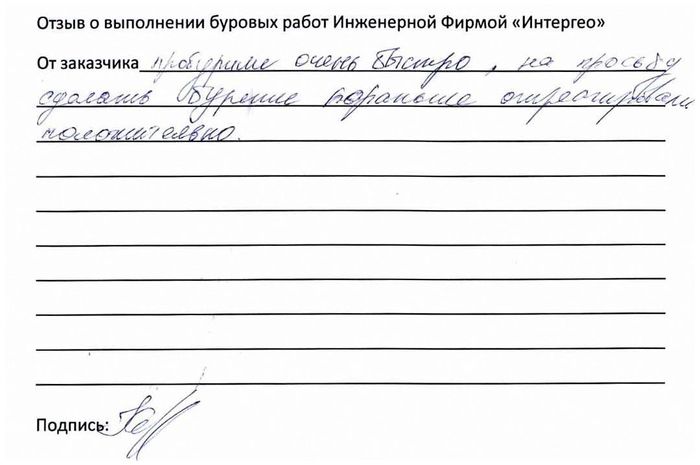 Отзыв о выполнении буровых работ Инженерной Фирмой «Интергео»
От заказчика пробурили очень быстро, на просьбу
сделать бурение пораньше отреагировали
положительно.
Подпись: